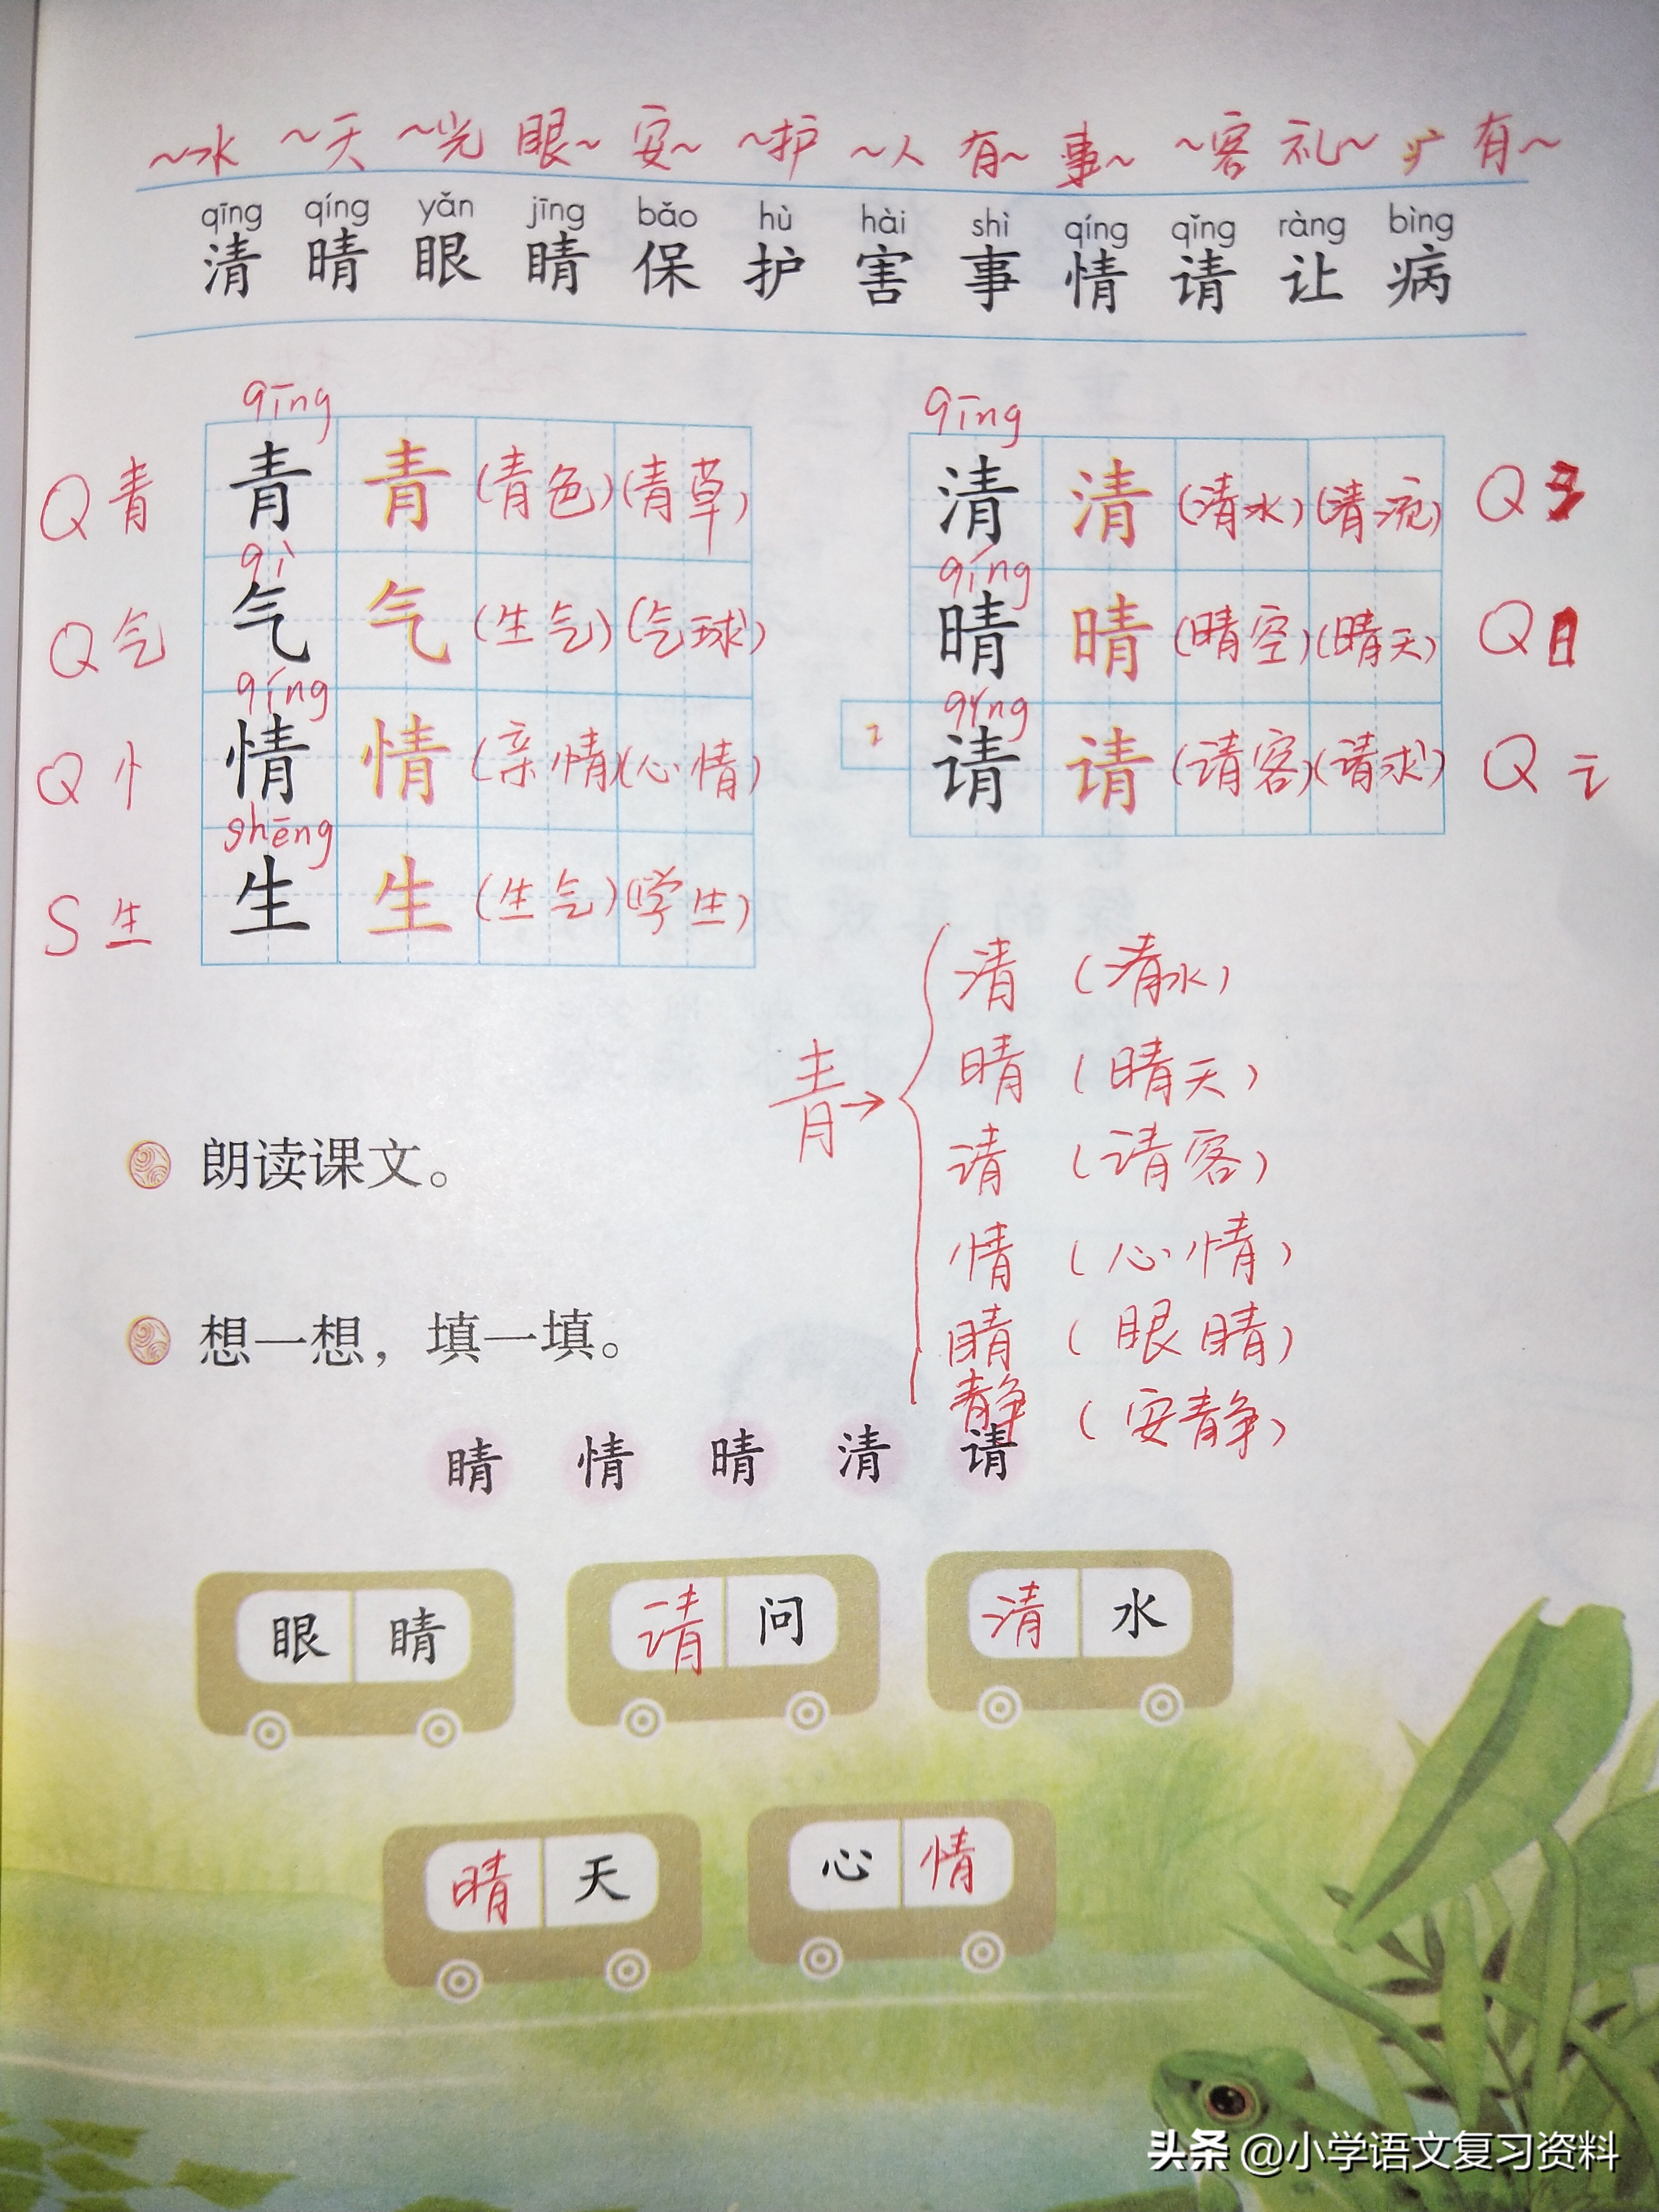 ~水 ~天 ~光 眼~ 安~ ~护 ~人 有~ 事~ ~客 礼~ 疒 有~
qīng qíng yǎn jīng bǎo hù hài shì qíng qǐng ràng bìng
清 晴 眼 睛 保 护 害 事 情 请 让 病
qīng
Q 青 青 青 (青色) (青草)
qì
Q 气 气 气 (生气) (气球)
qíng
Q 忄 情 情 (亲情) (心情)
shēng
S 生 生 生 (生气) (学生)
qīng
清 清 (清水) (清流) Q
qíng
晴 晴 (晴空) (晴天) Q 日
qǐng
请 请 (请客) (请求) Q 讠
青→
清 (清水)
晴 (晴天)
请 (请客)
情 (心情)
睛 (眼睛)
静 (安静)
朗读课文。
想一想，填一填。
睛 情 晴 清 请
眼 睛 请 问 清 水
晴 天 心 情
头条 @小学语文复习资料